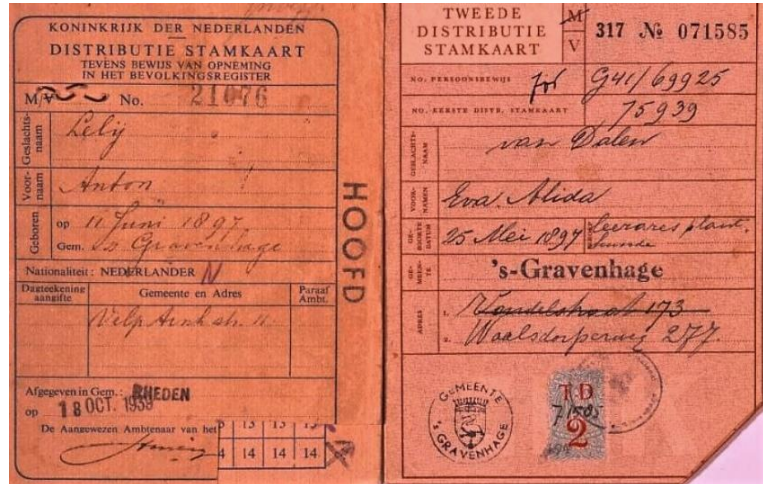 KONINKRIJK DER NEDERLANDEN
DISTRIBUTIE STAMKAART
TEVENS BEWIJS VAN OPNEMING
IN HET BEVOLKINGSREGISTER
M/V No. 21076
Geslachts-
naam
Lelij
Voor-
naam
Anton
Geboren
op 11 Juni 1897
Gem. 's Gravenhage
Nationaliteit: NEDERLANDER N
Dagteekening
aangifte
Gemeente en Adres
Paraaf
Ambt.
Velp Arnh. str. 11
Afgegeven in Gem.: RHEDEN
op 18 OCT. 1939
De Aangewezen Ambtenaar van het
13 13 13
14 14 14 14
HOOFD
TWEEDE
DISTRIBUTIE
STAMKAART
M
V
317 № 071585
NO. PERSOONSBEWIJS
G41/69925
NO. EERSTE DISTR. STAMKAART
75939
GESLACHTS-
NAAM
van Dalen
VOOR-
NAMEN
Eva Alida
GE-
BOORTE
DATUM
25 Mei 1897
Leerares plant-
kunde
GE-
MEEN-
TE
's-Gravenhage
ADRES
1. Vondelstraat 173
2. Waalsdorperweg 277.
GEMEENTE
's GRAVENHAGE
T D
71585
2